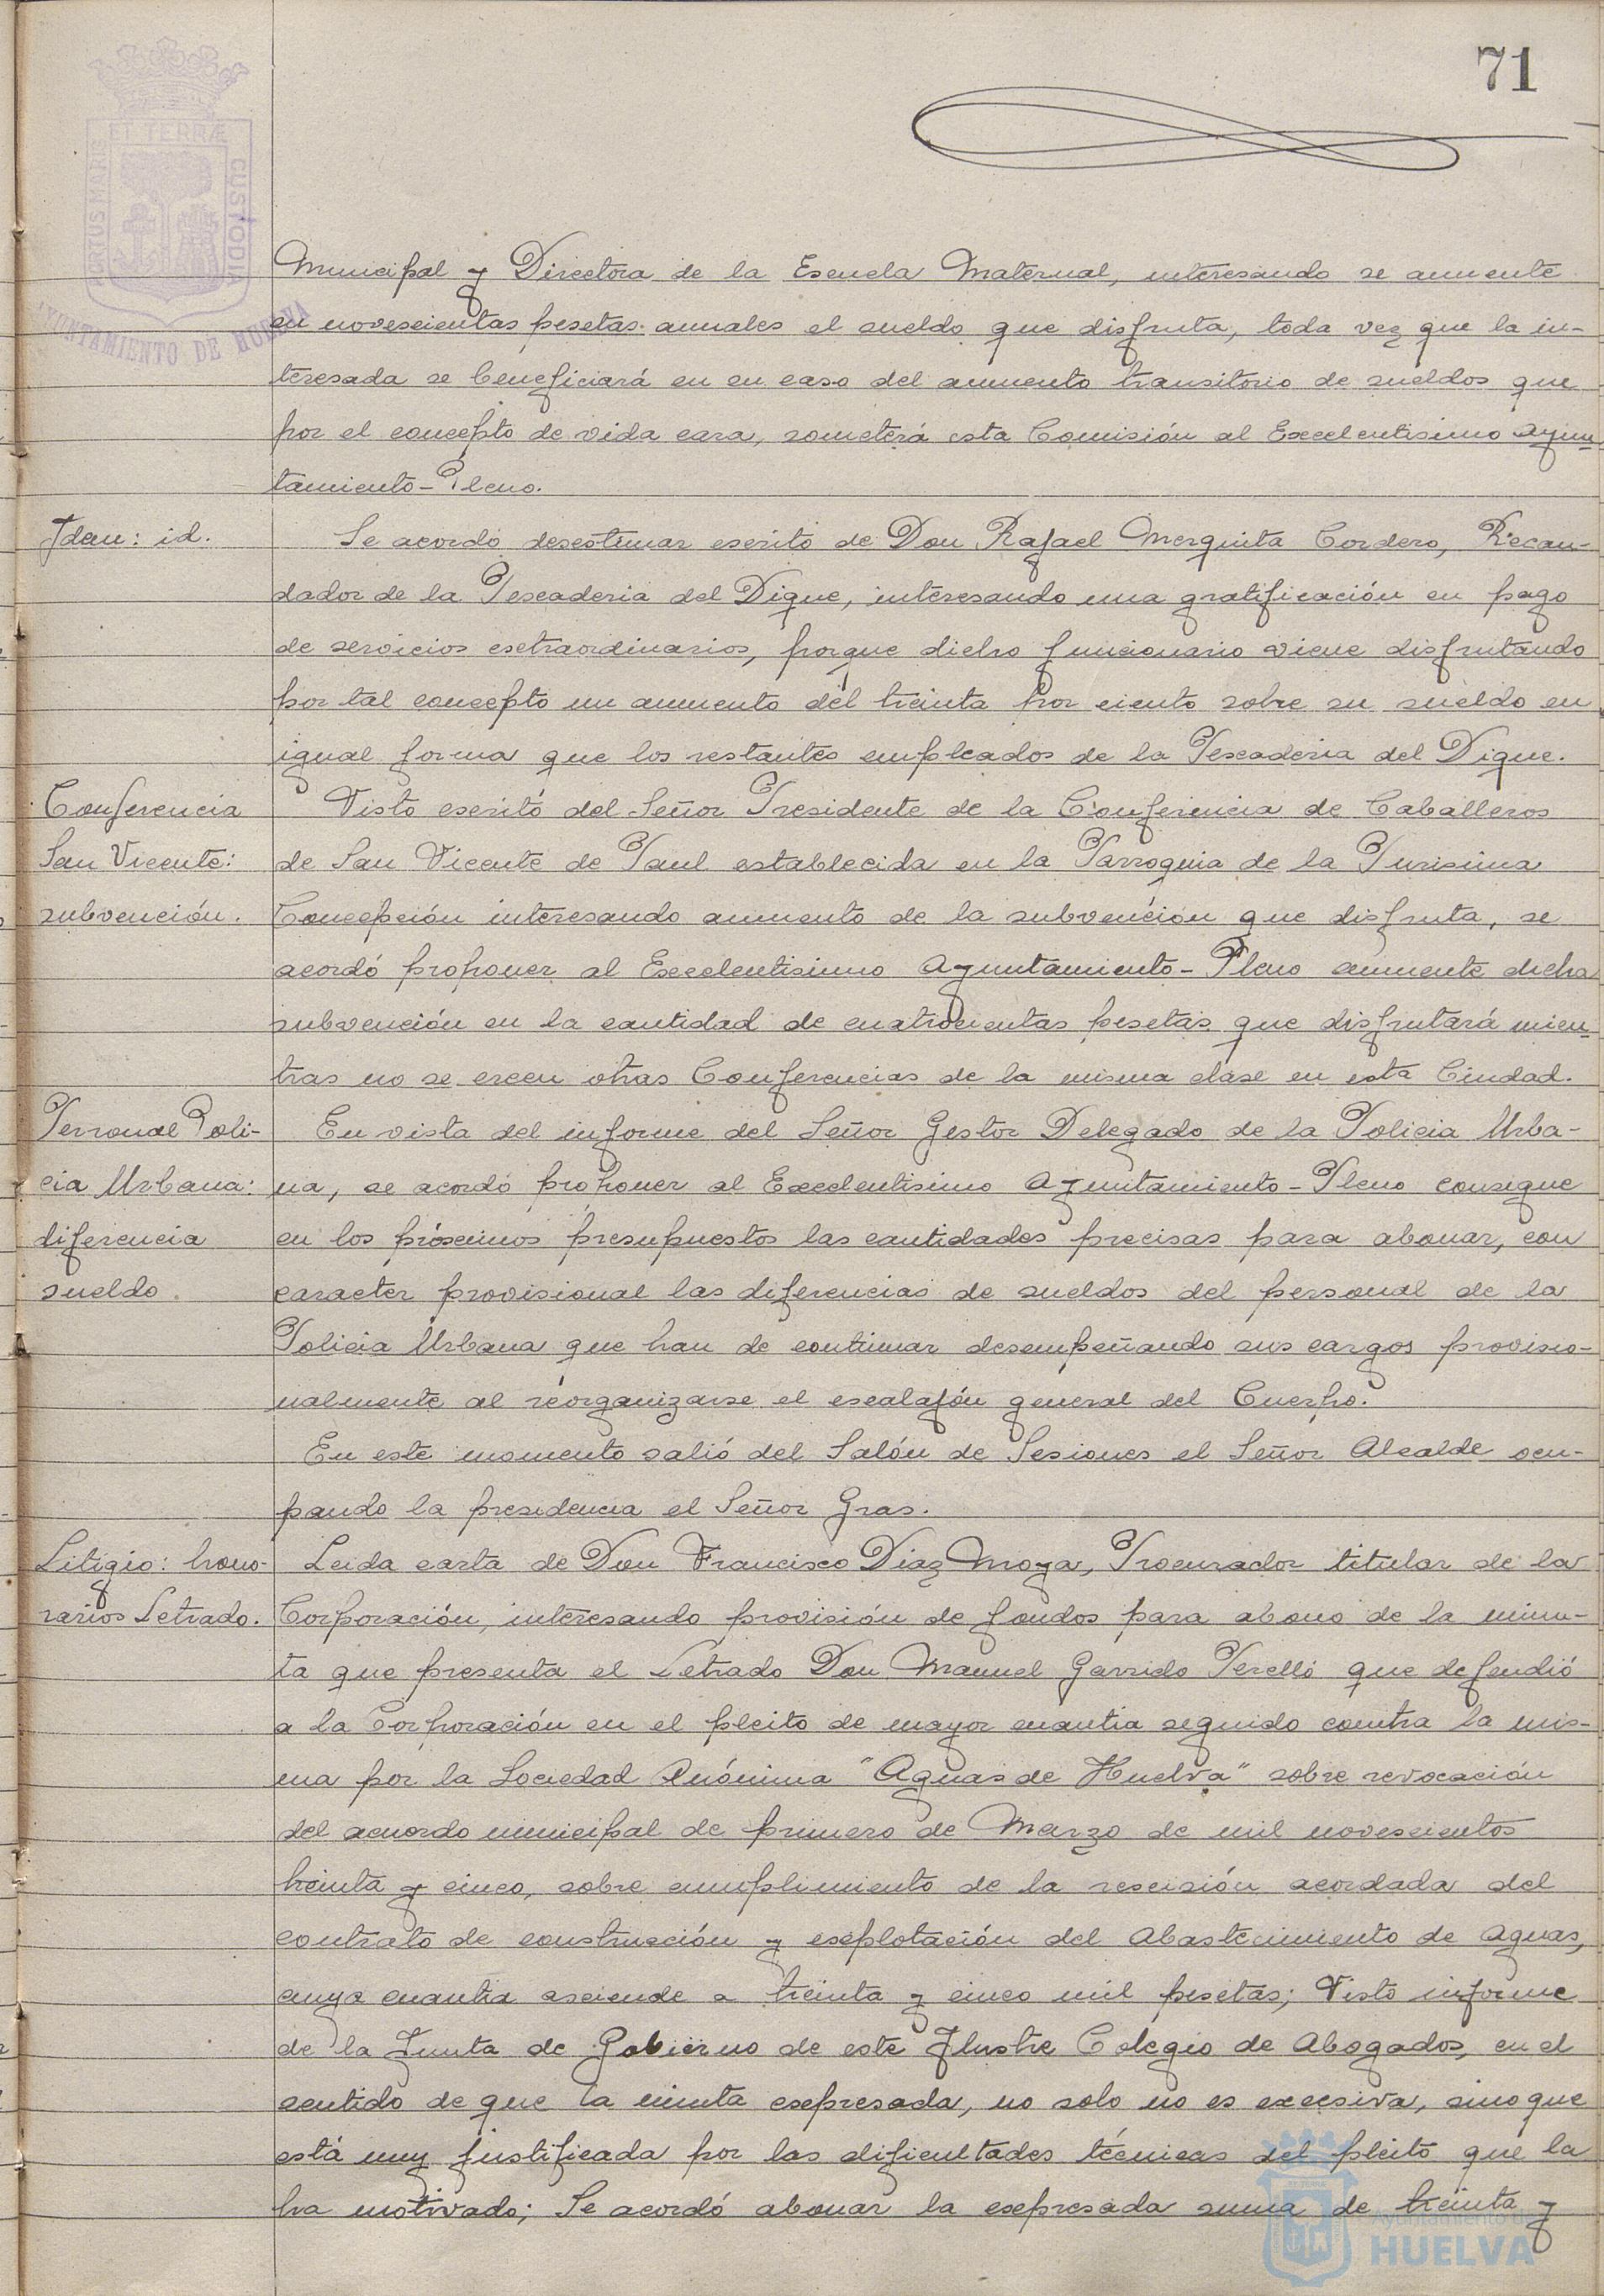 71
PORTUS MARIS
ET TERRÆ
CUSTODIA
AYUNTAMIENTO DE HUELVA
Municipal y Directora de la Escuela Maternal, interesando se aumente
en novescientas pesetas anuales el sueldo que disfruta, toda vez que la in-
teresada se beneficiará en su caso del aumento transitorio de sueldos que
por el concepto de vida cara, someterá esta Comisión al Excelentisimo Ayun-
tamiento-Pleno.
Idem: id.
Se acordó desestimar escrito de Don Rafael Merquita Cordero, Recau-
dador de la Pescaderia del Dique, interesando una gratificación en pago
de servicios extraordinarios, porque dicho funcionario viene disfrutando
por tal concepto un aumento del treinta por ciento sobre su sueldo en
igual forma que los restantes empleados de la Pescaderia del Dique.
Conferencia
San Vicente:
subvención.
Visto escrito del Señor Presidente de la Conferencia de Caballeros
de San Vicente de Paul establecida en la Parroquia de la Purisima
Concepción interesando aumento de la subvención que disfruta, se
acordó proponer al Excelentisimo Ayuntamiento-Pleno aumente dicha
subvención en la cantidad de cuatrocientas pesetas que disfrutará mien-
tras no se creen otras Conferencias de la misma clase en esta Ciudad.
Personal Poli-
cia Urbana:
diferencia
sueldo.
En vista del informe del Señor Gestor Delegado de la Policia Urba-
na, se acordó proponer al Excelentisimo Ayuntamiento-Pleno consigne
en los próximos presupuestos las cantidades precisas para abonar, con
caracter provisional las diferencias de sueldos del personal de la
Policia Urbana que han de continuar desempeñando sus cargos provisio-
nalmente al reorganizarse el escalafón general del Cuerpo.
En este momento salió del Salón de Sesiones el Señor Alcalde ocu-
pando la presidencia el Señor Gras.
Litigio: hono-
rarios Letrado.
Leida carta de Don Francisco Diaz Moya, Procurador titular de la
Corporación, interesando provisión de fondos para abono de la minu-
ta que presenta el Letrado Don Manuel Garrido Perelló que defendió
a la Corporación en el pleito de mayor cuantia seguido contra la mis-
ma por la Sociedad Anónima "Aguas de Huelva" sobre revocación
del acuerdo municipal de primero de Marzo de mil novescientos
treinta y cinco, sobre cumplimiento de la rescisión acordada del
contrato de construcción y explotación del Abastecimiento de Aguas,
cuya cuantia asciende a treinta y cinco mil pesetas; Visto informe
de la Junta de Gobierno de este Ilustre Colegio de Abogados, en el
sentido de que la minuta expresada, no solo no es excesiva, sino que
está muy justificada por las dificultades técnicas del pleito que la
ha motivado; Se acordó abonar la expresada suma de treinta y
Ayuntamiento de
HUELVA